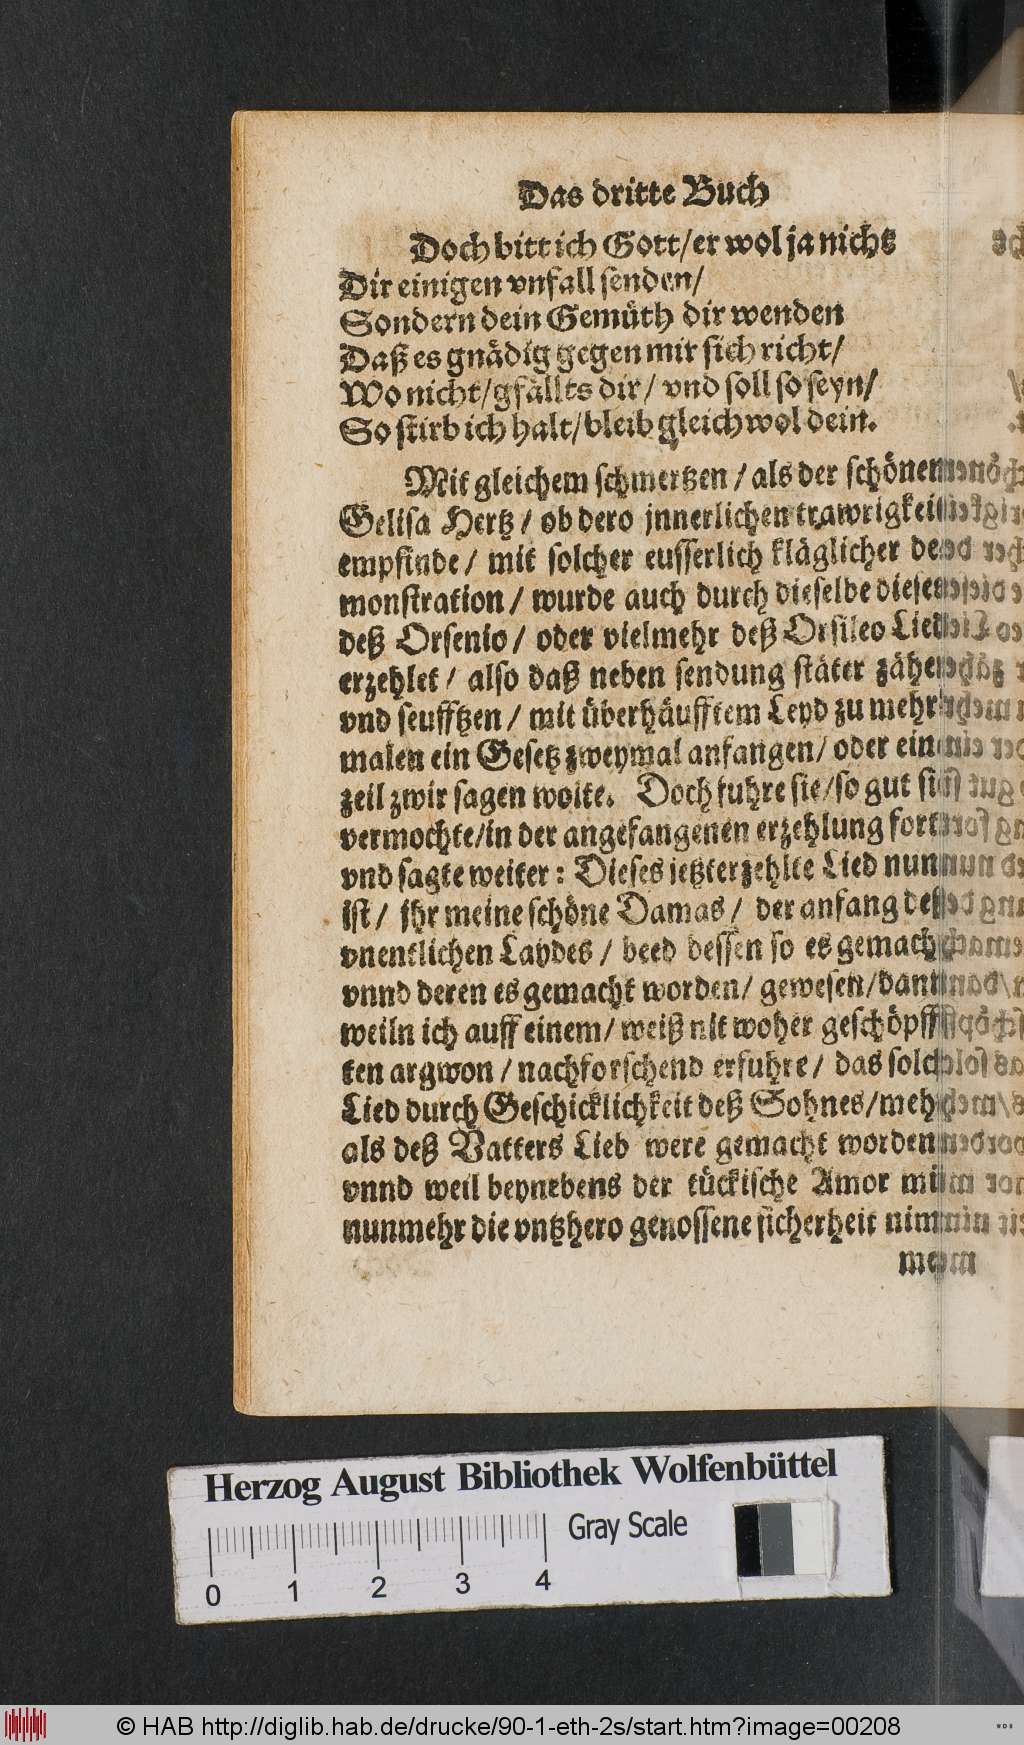 Das dritte Buch
Doch bitt ich Gott/ er wol ja nicht
Dir einigen vnfall senden/
Sondern dein Gemüth dir wenden
Daß es gnädig gegen mir sich richt/
Wo nicht/ gfällts dir/ vnd soll so seyn/
So stirb ich halt/ bleib gleichwol dein.
Mit gleichem schmertzen / als der schönen
Gelisa Hertz / ob dero jnnerlichen trawrigkeit
empfinde / mit solcher eusserlich kläglicher de-
monstration / wurde auch durch dieselbe dieses
deß Orsenio / oder vielmehr deß Orsileo Lied
erzehlet / also daß neben sendung stäter zäher
vnd seufftzen / mit überhäufftem Leyd zu mehr
malen ein Gesetz zweymal anfangen/ oder ein
zeil zwir sagen wolte. Doch fuhre sie/ so gut sie
vermochte/ in der angefangenen erzehlung fort
vnd sagte weiter: Dieses jetzterzehlte Lied nun
ist / jhr meine schöne Damas / der anfang deß
vnentlichen Laydes / beed dessen so es gemach
vnnd deren es gemacht worden/ gewesen/ dann
weiln ich auff einem/ weiß nit woher geschöpff
ten argwon / nachforschend erfuhre / das solch
Lied durch Geschicklichkeit deß Sohnes/ meh
als deß Vatters Lieb were gemacht worden
vnnd weil beynebens der tückische Amor mi
nunmehr die vntzhero genossene sicherheit nim
Herzog August Bibliothek Wolfenbüttel
Gray Scale
0 1 2 3 4
© HAB http://diglib.hab.de/drucke/90-1-eth-2s/start.htm?image=00208